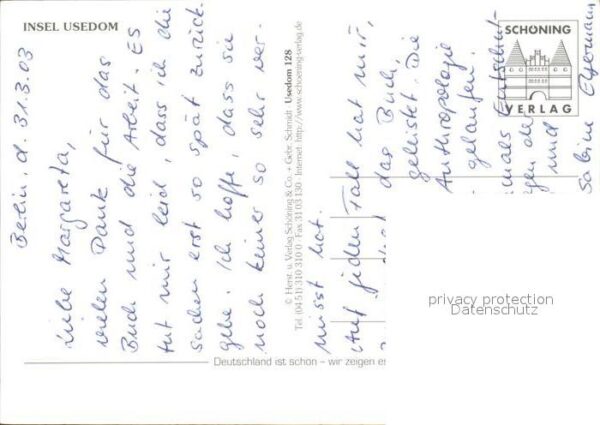 INSEL USEDOM
Berlin, d. 31.3.03
Liebe Margareta,
vielen Dank für das
Buch und die Arbeit. Es
tut mir leid, dass ich die
Sachen erst so spät zurück
gebe. Ich hoffe, dass sie
noch keiner so sehr ver-
misst hat.
Auf jeden Fall hat mir,
das Buch,
geleistet. Die
Anthropologie
gelaufen.
mals Entschul-
gen die
und
Sabine
© Herst. u. Verlag Schöning & Co. + Gebr. Schmidt Usedom 128
Tel. (0451) 310 310 0 · Fax 31 03 130 · Internet: http://www.schoening-verlag.de
Deutschland ist schön – wir zeigen es
SCHÖNING
VERLAG
privacy protection
Datenschutz